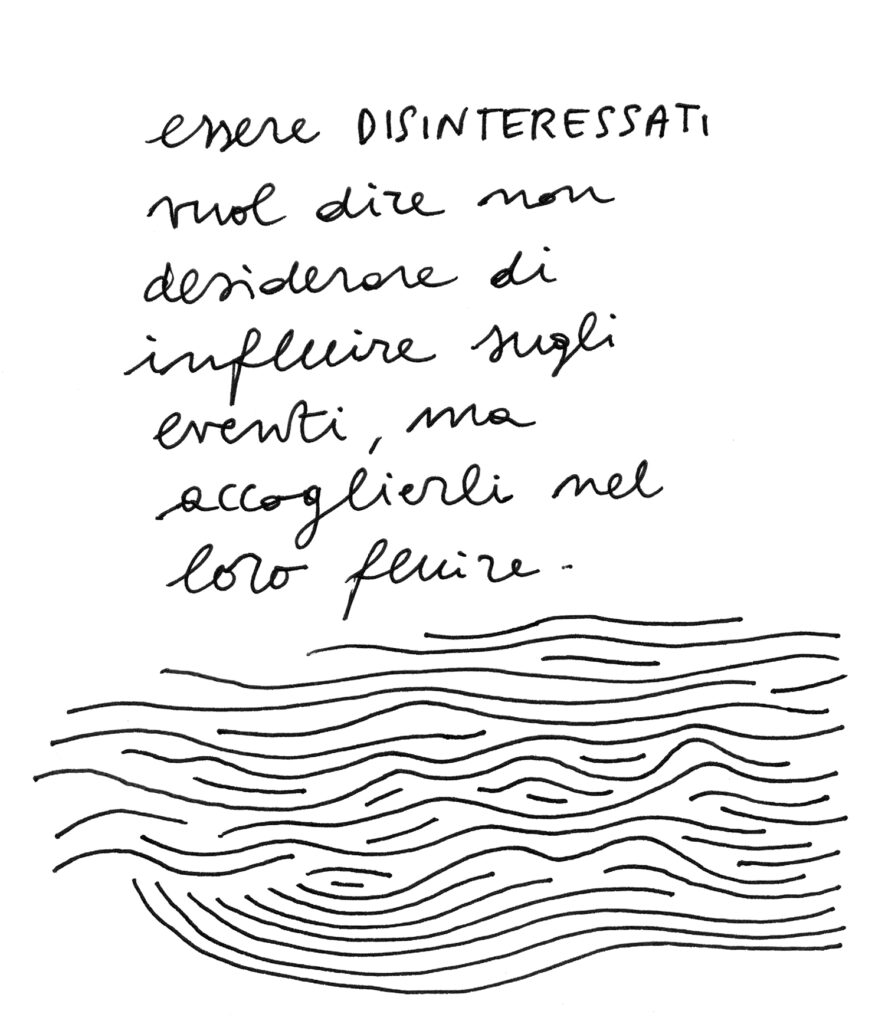 essere DISINTERESSATI
vuol dire non
desiderare di
influire sugli
eventi, ma
accoglierli nel
loro fluire.